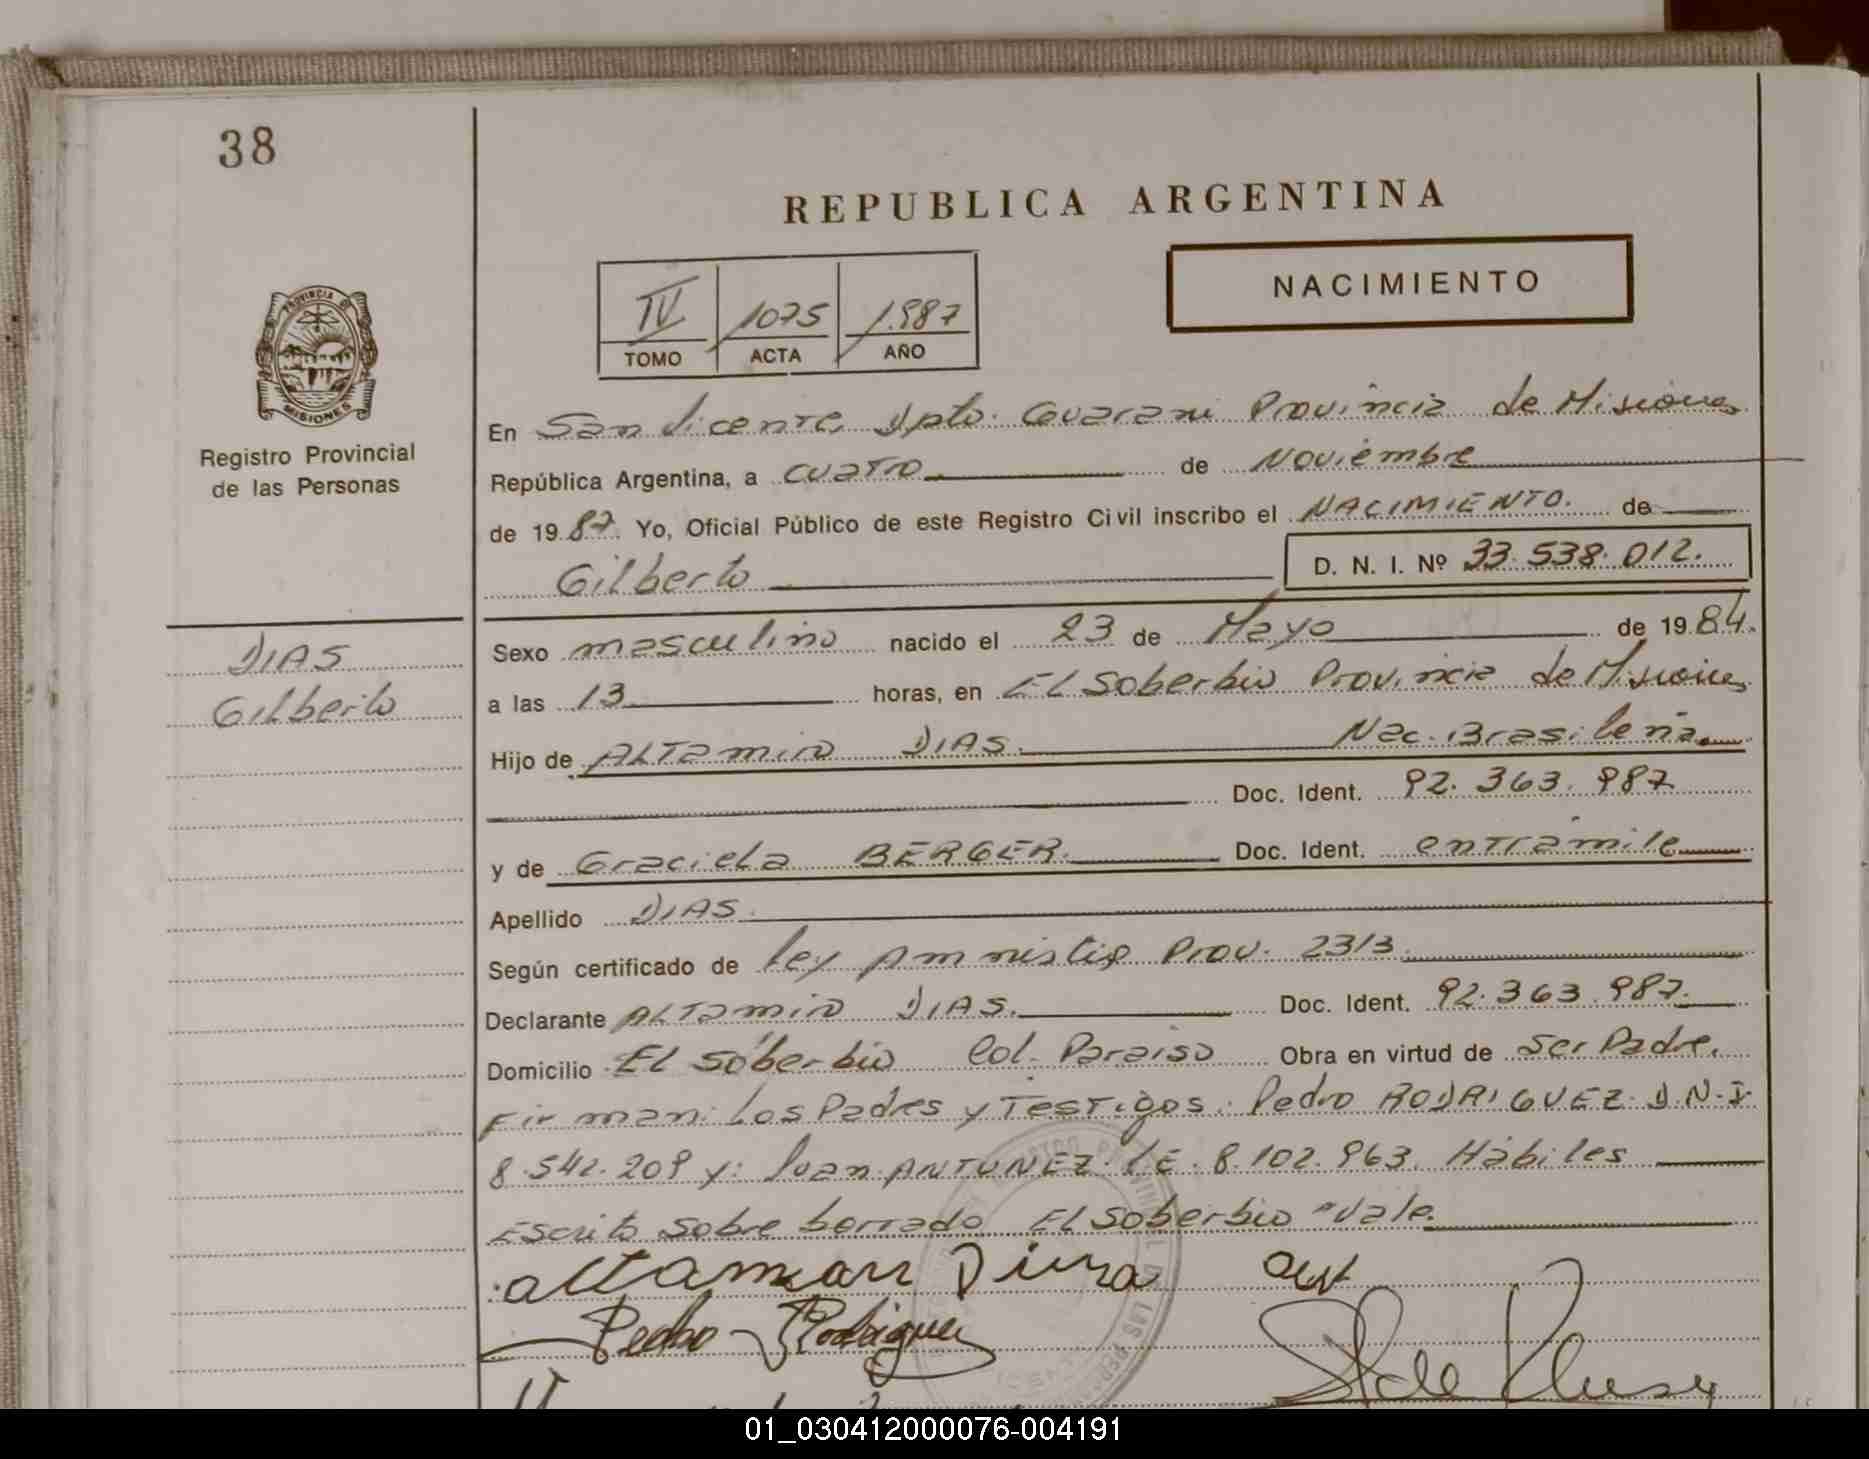 38
REPUBLICA ARGENTINA
NACIMIENTO
IV 1075 1.987
TOMO ACTA AÑO
PROVINCIA DE
MISIONES
Registro Provincial
de las Personas
En San Vicente, Dpto. Guarani Provincia de Misiones
República Argentina, a cuatro de Noviembre
de 1987. Yo, Oficial Público de este Registro Civil inscribo el NACIMIENTO. de
Gilberto D. N. I. Nº 33.538.012.
DIAS
Gilberto
Sexo masculino nacido el 23 de Mayo de 1984.
a las 13 horas, en EL Soberbio Provincia de Misiones
Hijo de ALTamiro DIAS. Nac. Brasileña.
Doc. Ident. 92.363.987
y de Graciela BERGER. Doc. Ident. en tramite
Apellido DIAS.
Según certificado de Ley Amnistia Prov. 2313.
Declarante ALTamiro DIAS. Doc. Ident. 92.363.987.
Domicilio EL Soberbio Col. Paraiso Obra en virtud de Ser Padre.
Firman: Los Padres y Testigos: Pedro RODRIGUEZ. D.N.I.
8.542.209 y: Juan ANTUNEZ. L.E. 8.102.963. Hábiles
Escrito sobre borrado EL Soberbio "Vale.
Pedro Rodriguez
01_030412000076-004191